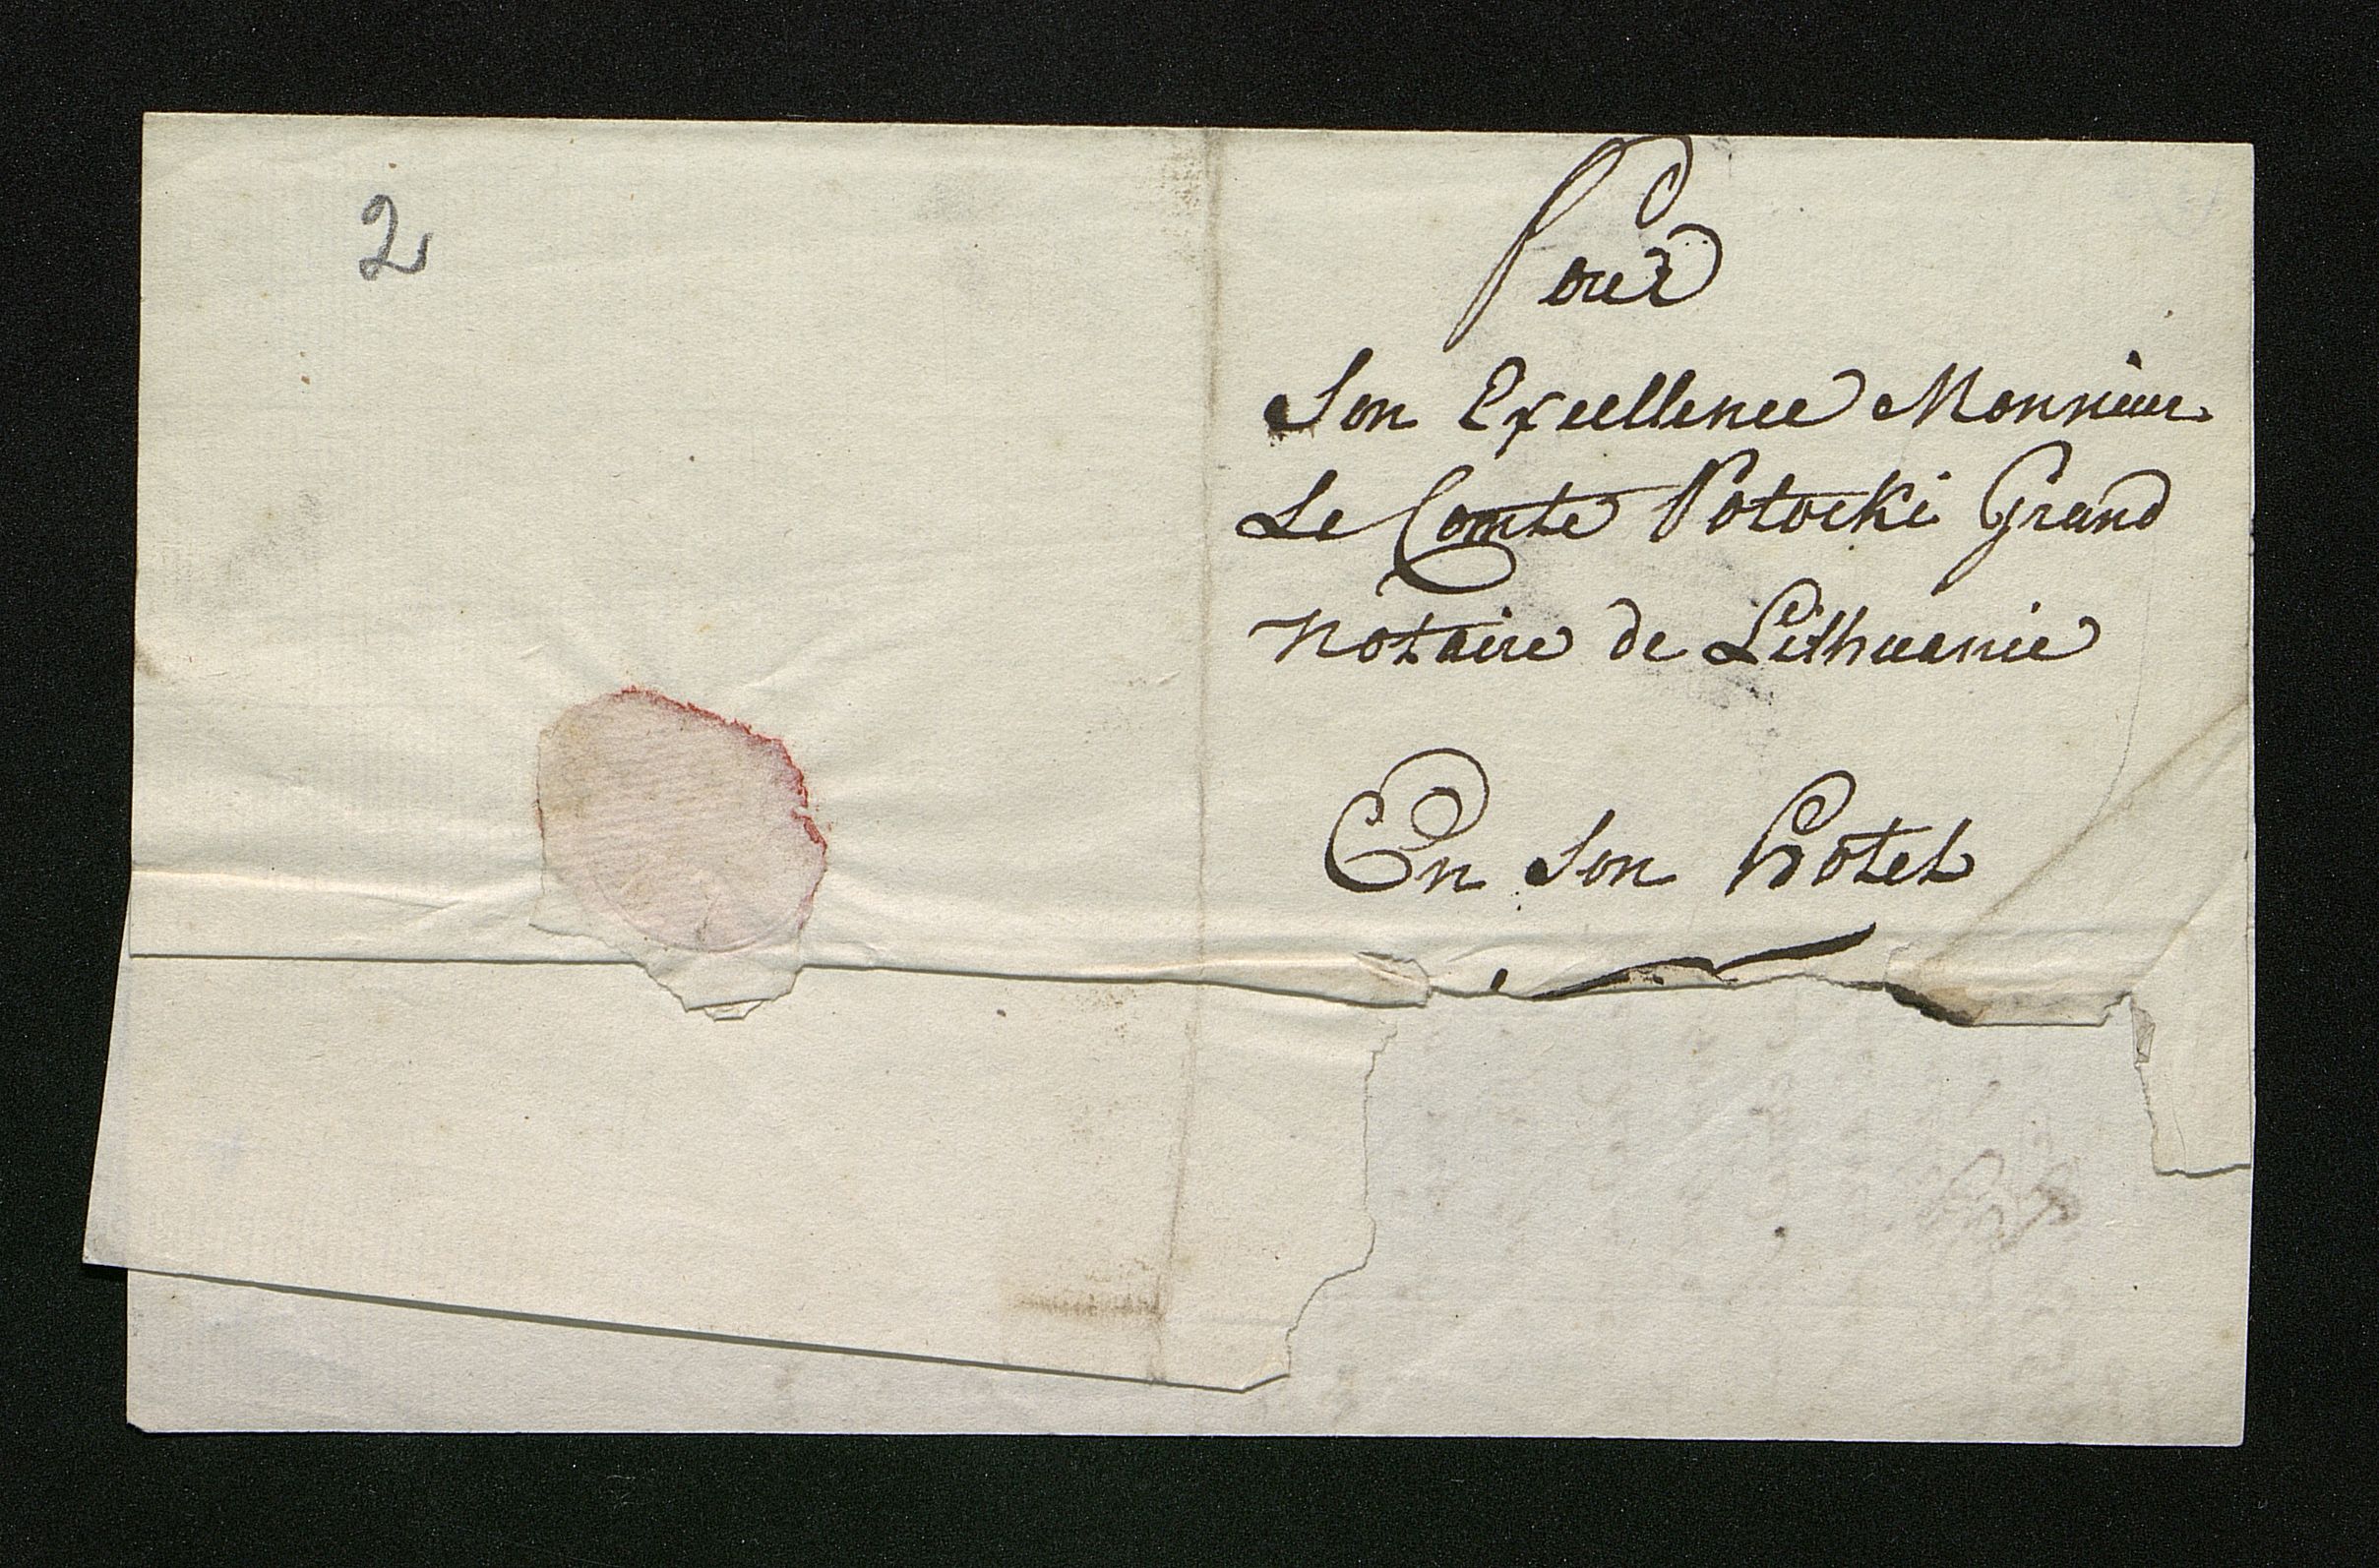 2
Pour
Son Excellence Monsieur
Le Comte Potocki Grand
Notaire de Lithuanie
En Son Hotel